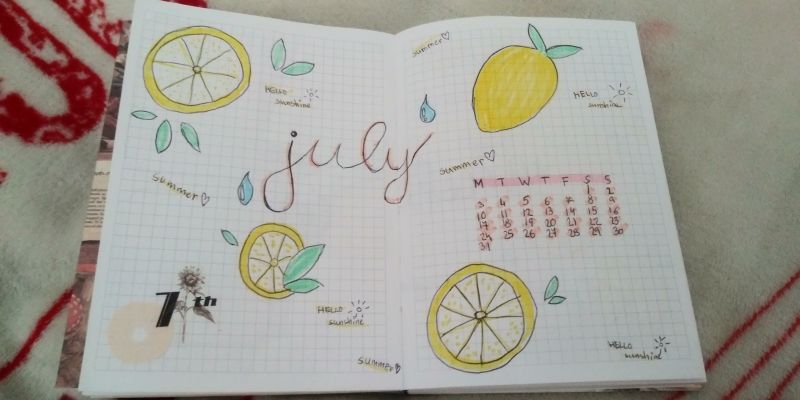 HELLO
sunshine
summer
july
7th
HELLO
sunshine
summer
summer
HELLO
sunshine
summer
M T W T F S S
1 2
3 4 5 6 7 8 9
10 11 12 13 14 15 16
17 18 19 20 21 22 23
24 25 26 27 28 29 30
31
HELLO
sunshine